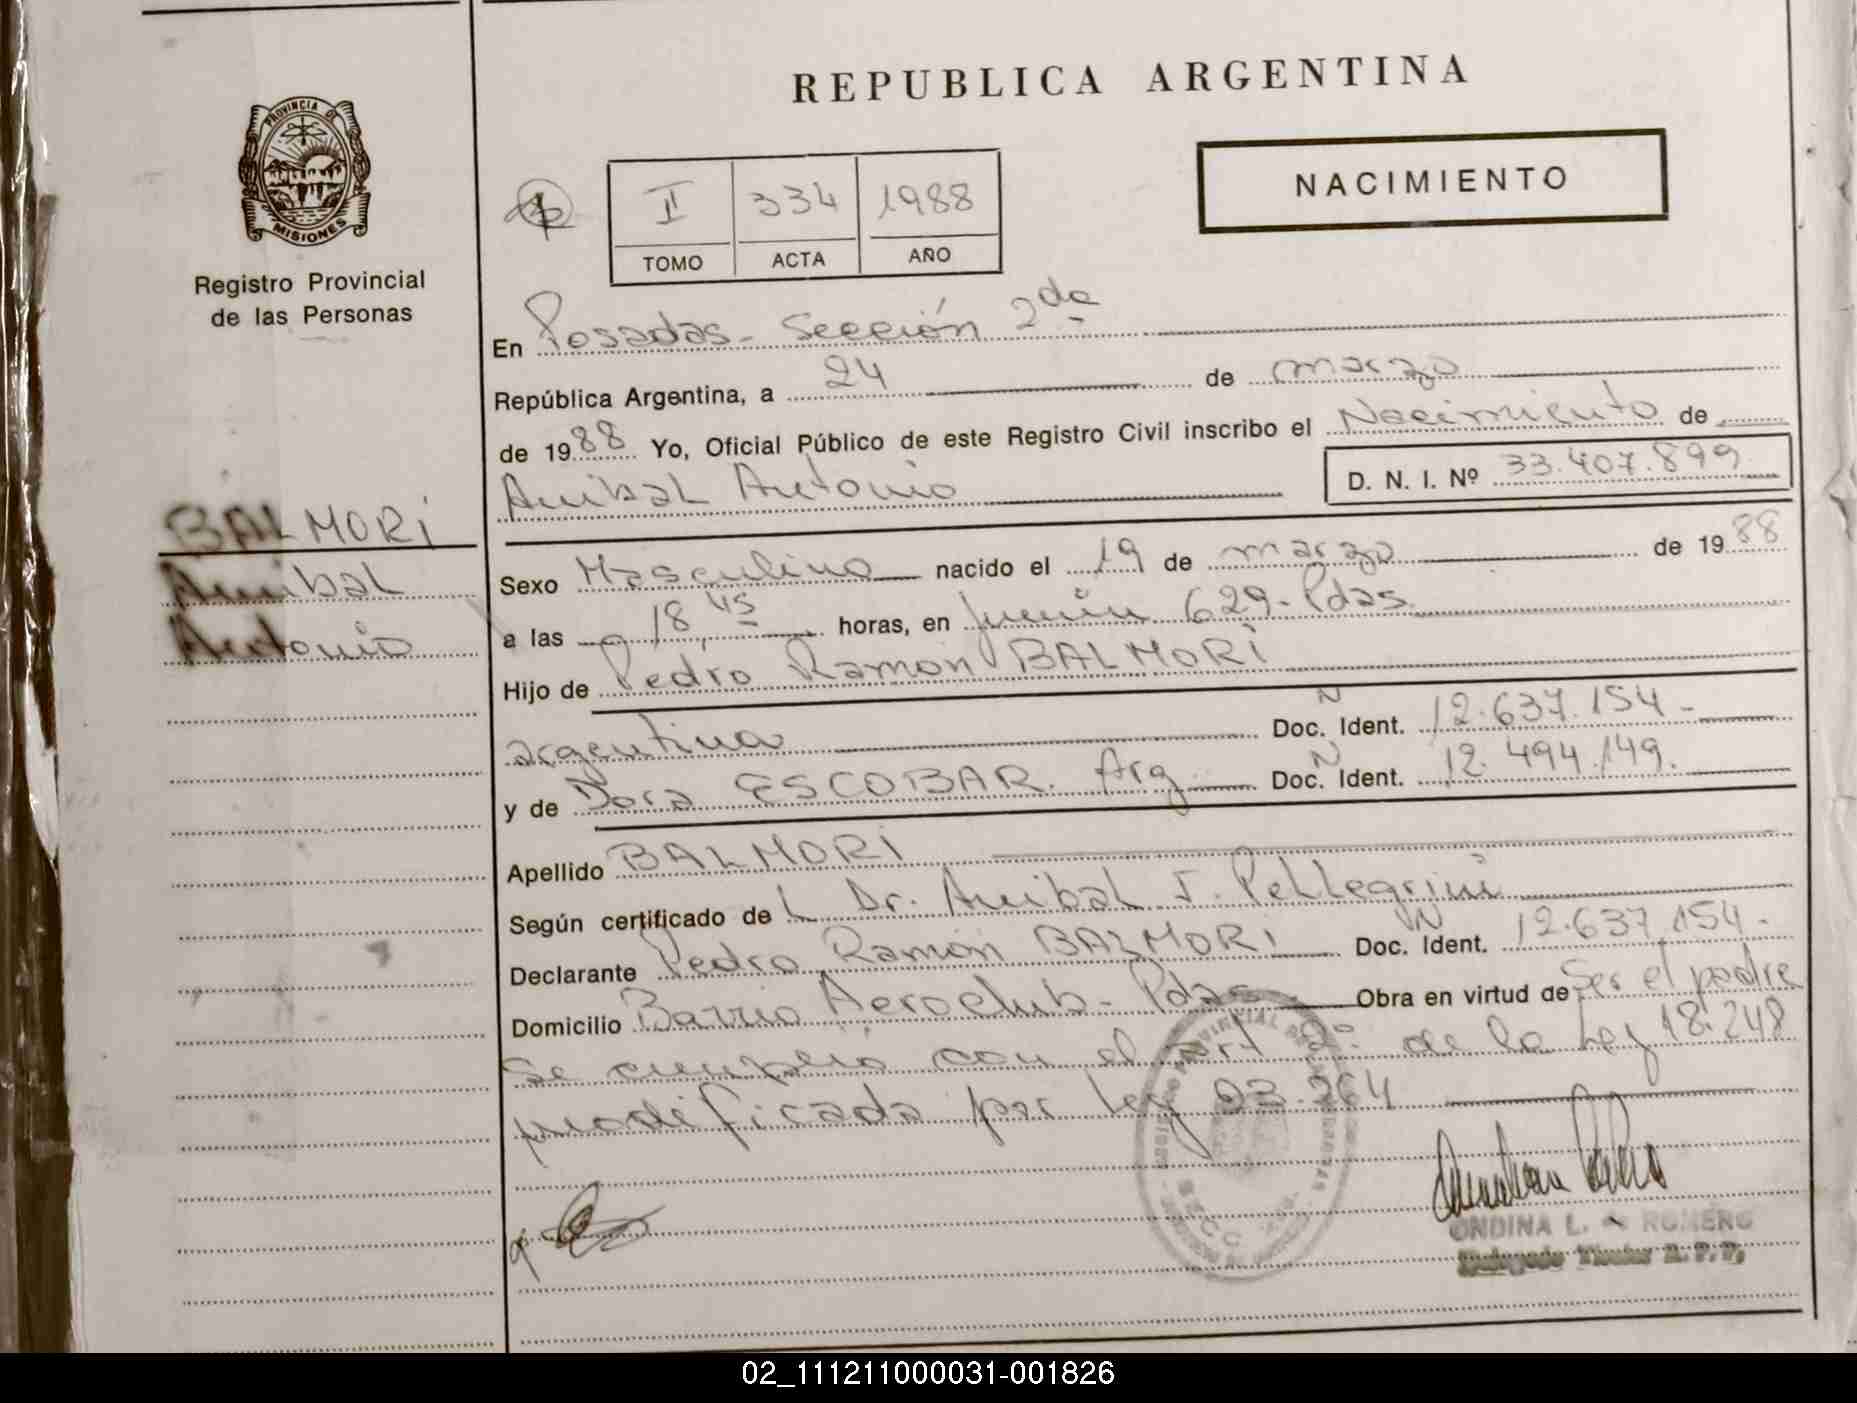 REPUBLICA ARGENTINA
PROVINCIA DE
MISIONES
Registro Provincial
de las Personas
I 334 1988
TOMO ACTA AÑO
NACIMIENTO
En Posadas - Sección 2da
República Argentina, a 24 de marzo
de 1988 Yo, Oficial Público de este Registro Civil inscribo el Nacimiento de
Anibal Antonio D. N. I. Nº 33.407.899
BALMORI
Anibal
Antonio
Sexo Masculino nacido el 19 de marzo de 1988
a las 18,45 horas, en Junín 629 - Pdas.
Hijo de Pedro Ramón BALMORI
argentina Doc. Ident. N 12.637.154 -
y de Dora ESCOBAR. Arg. Doc. Ident. N 12.494.149.
Apellido BALMORI
Según certificado de L Dr. Anibal J. Pellegrini
Declarante Pedro Ramón BALMORI Doc. Ident. N 12.637.154 -
Domicilio Barrio Aeroclub - Pdas Obra en virtud de Ser el padre
Se cumplió con el art 2º de la Ley 18.248
modificada por Ley 23.264
SECC
ONDINA L. de ROMERO
Titular R.P.P.
02_111211000031-001826